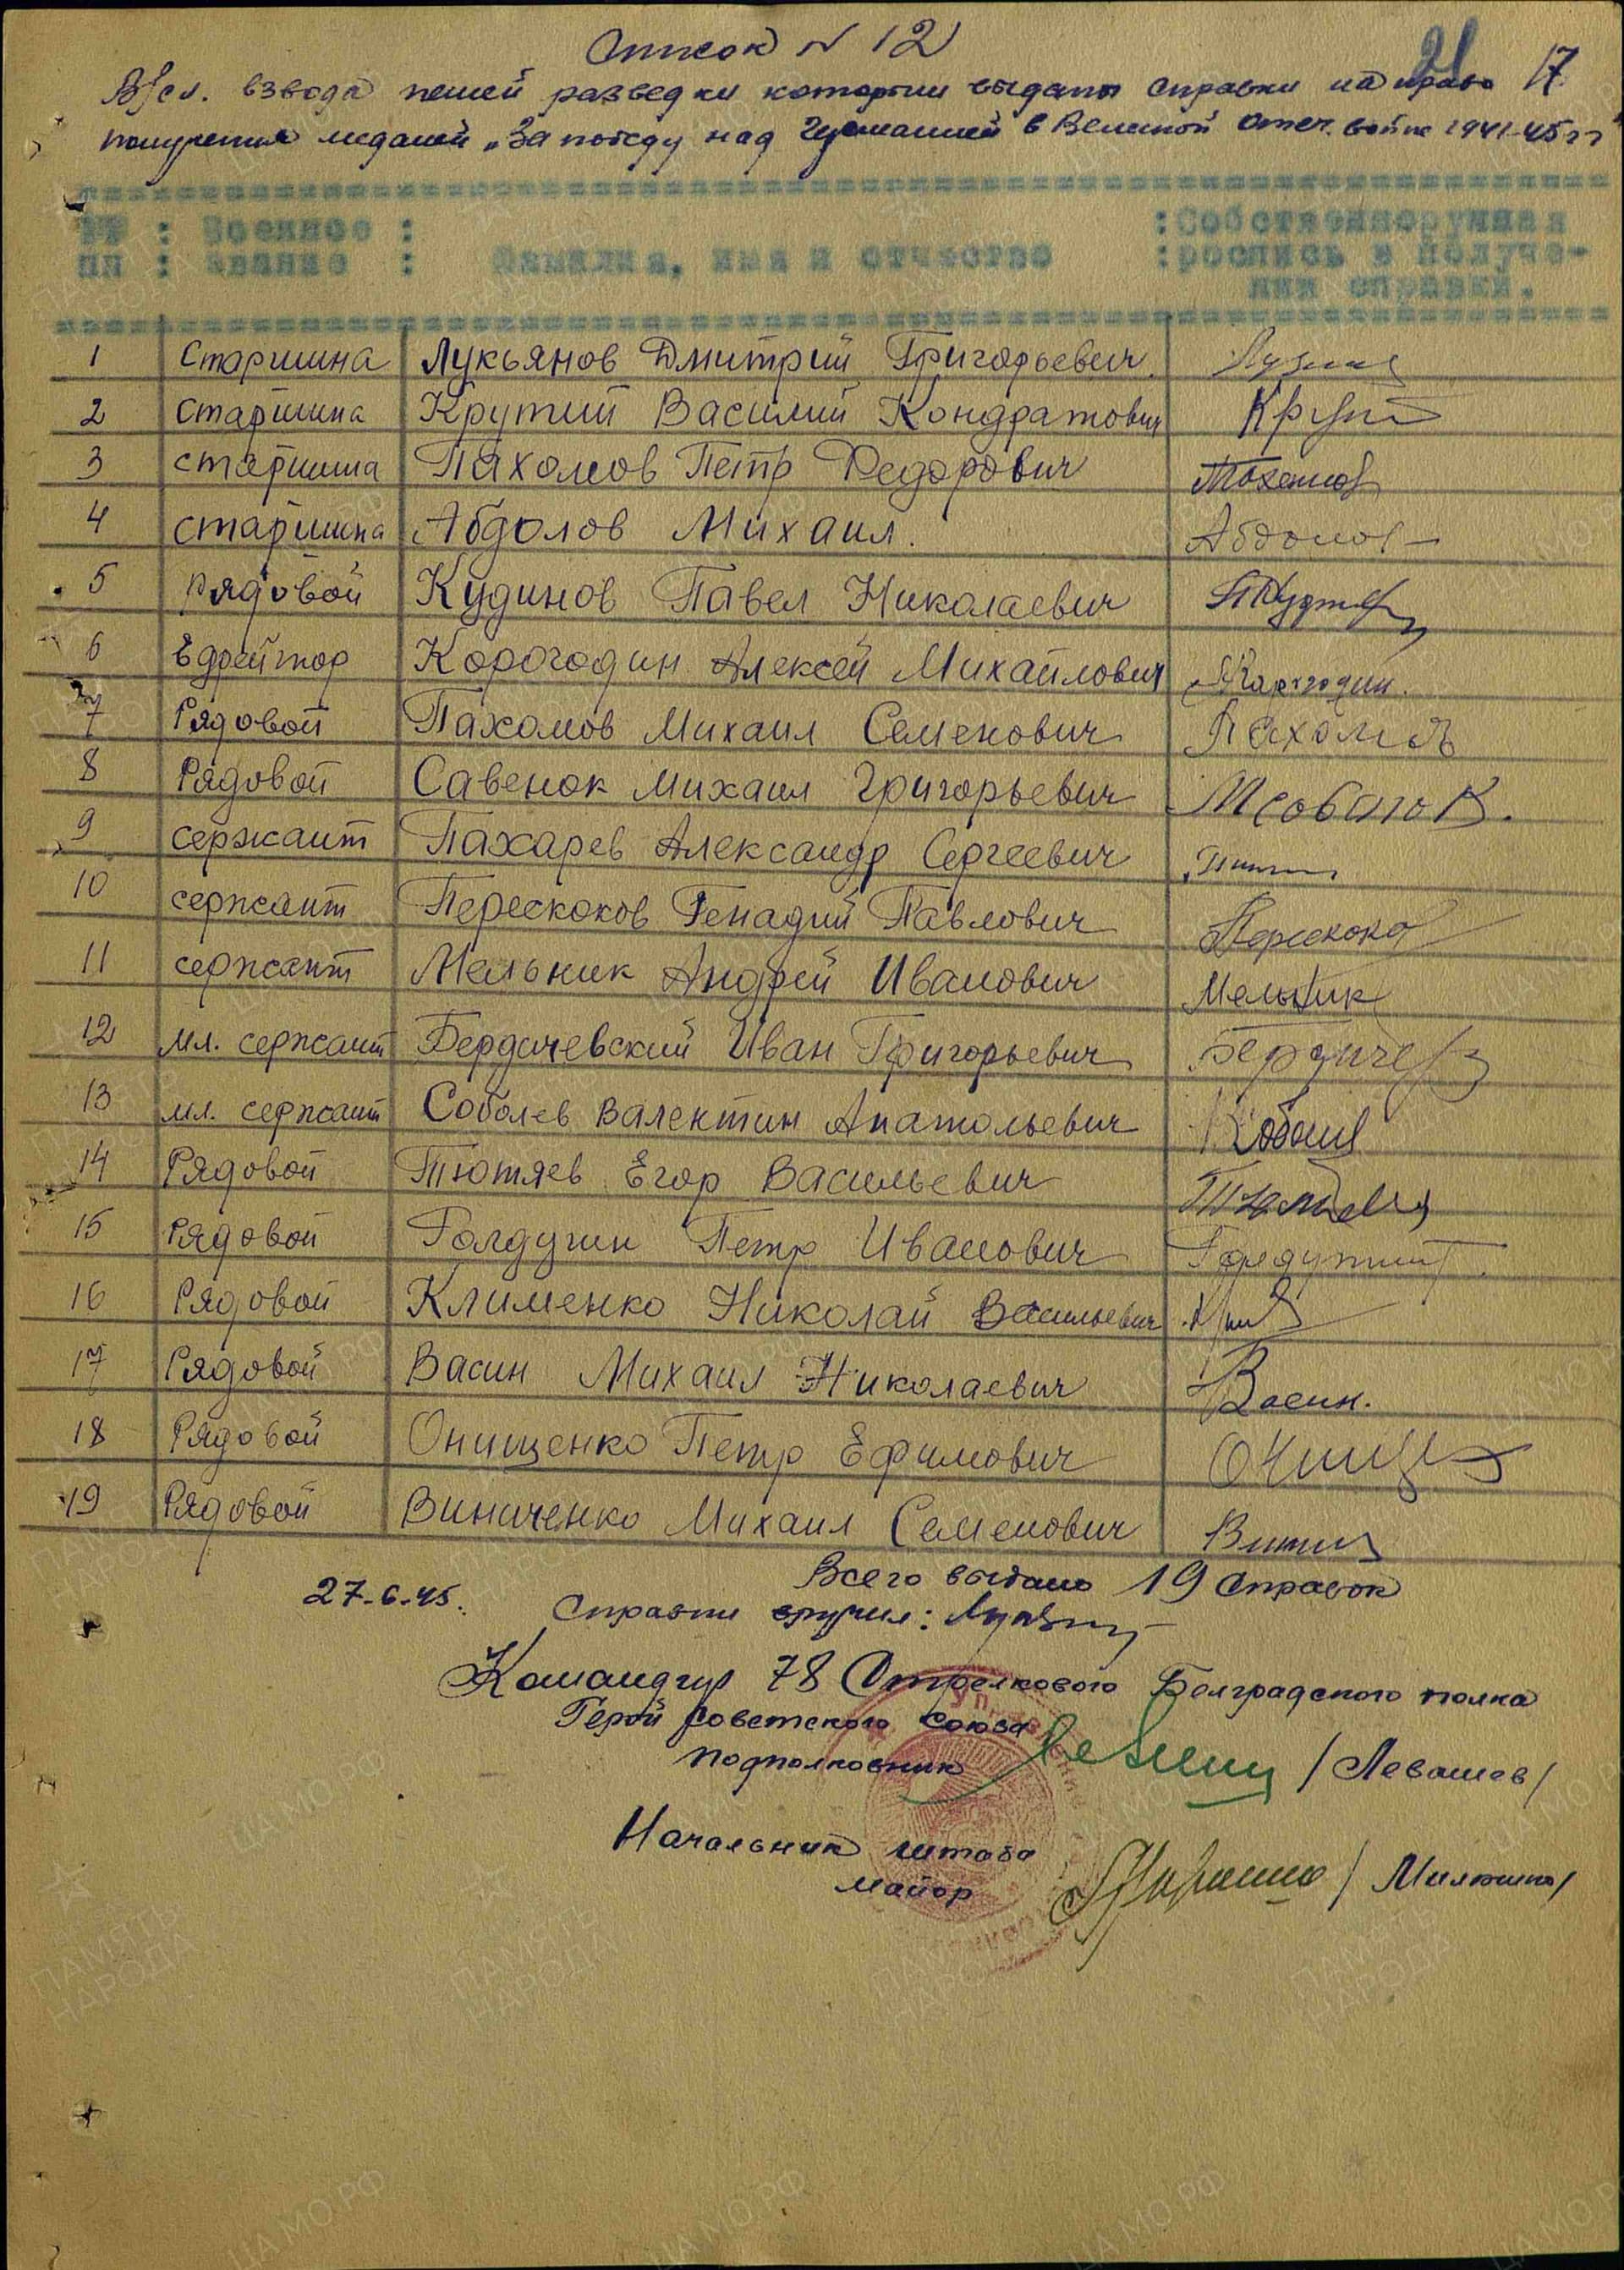 Список № 12
21 17
В/сл. взвода пешей разведки которым выданы справки на право
получения медалей „За победу над Германией в Великой Отеч. войне 1941-45 гг"
№№ : Военное : :Собственноручная
пп : звание : Фамилия, имя и отчество :роспись в получе-
нии справки.
1 Старшина Лукьянов Дмитрий Григорьевич
2 Старшина Крутий Василий Кондратович Крут
3 старшина Пахомов Петр Федорович Пахомов
4 старшина Абдолов Михаил. Абдолов
5 Рядовой Кудинов Павел Николаевич
6 Ефрейтор Корогодин Алексей Михайлович Карагодин.
7 Рядовой Пахомов Михаил Семенович Пахомов
8 Рядовой Савенок Михаил Григорьевич
9 сержант Пахарев Александр Сергеевич
10 сержант Перескоков Генадий Павлович Перескоко
11 сержант Мельник Андрей Иванович Мельник
12 мл. сержант Бердичевский Иван Григорьевич Бердичев
13 мл. сержант Соболев Валентин Анатольевич
14 Рядовой Тютяев Егор Васильевич
15 Рядовой Голдугин Петр Иванович
16 Рядовой Клименко Николай Васильевич
17 Рядовой Васин Михаил Николаевич Васин.
18 Рядовой Онищенко Петр Ефимович Онище
19 Рядовой Виниченко Михаил Семенович
Всего выдано 19 справок
27-6-45. Справки вручил:
Командир 78 Стрелкового Белградского полка
Герой Советского Союза
подполковник /Левашев/
Начальник штаба
майор
ПАМЯТЬ НАРОДА
ЦА МО РФ